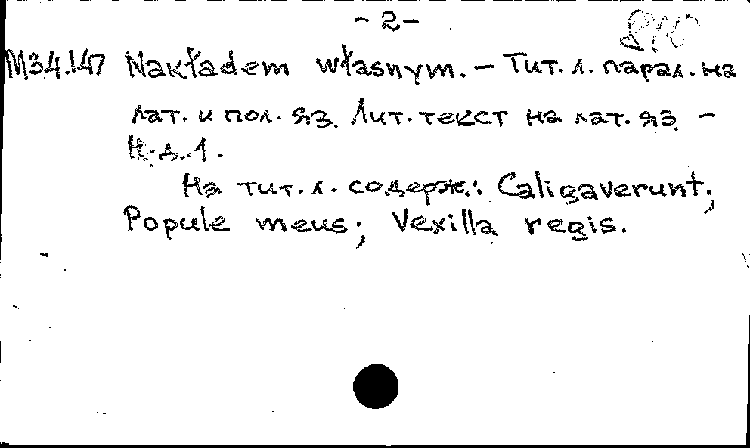 - 2 -
М34.147 Nakładem własnym. - Тит. л. парал. на
лат. и пол. яз. Лит. текст на лат. яз. -
Н.д.1.
На тит. л. содерж.: Caligaverunt;
Popule meus; Vexilla regis.